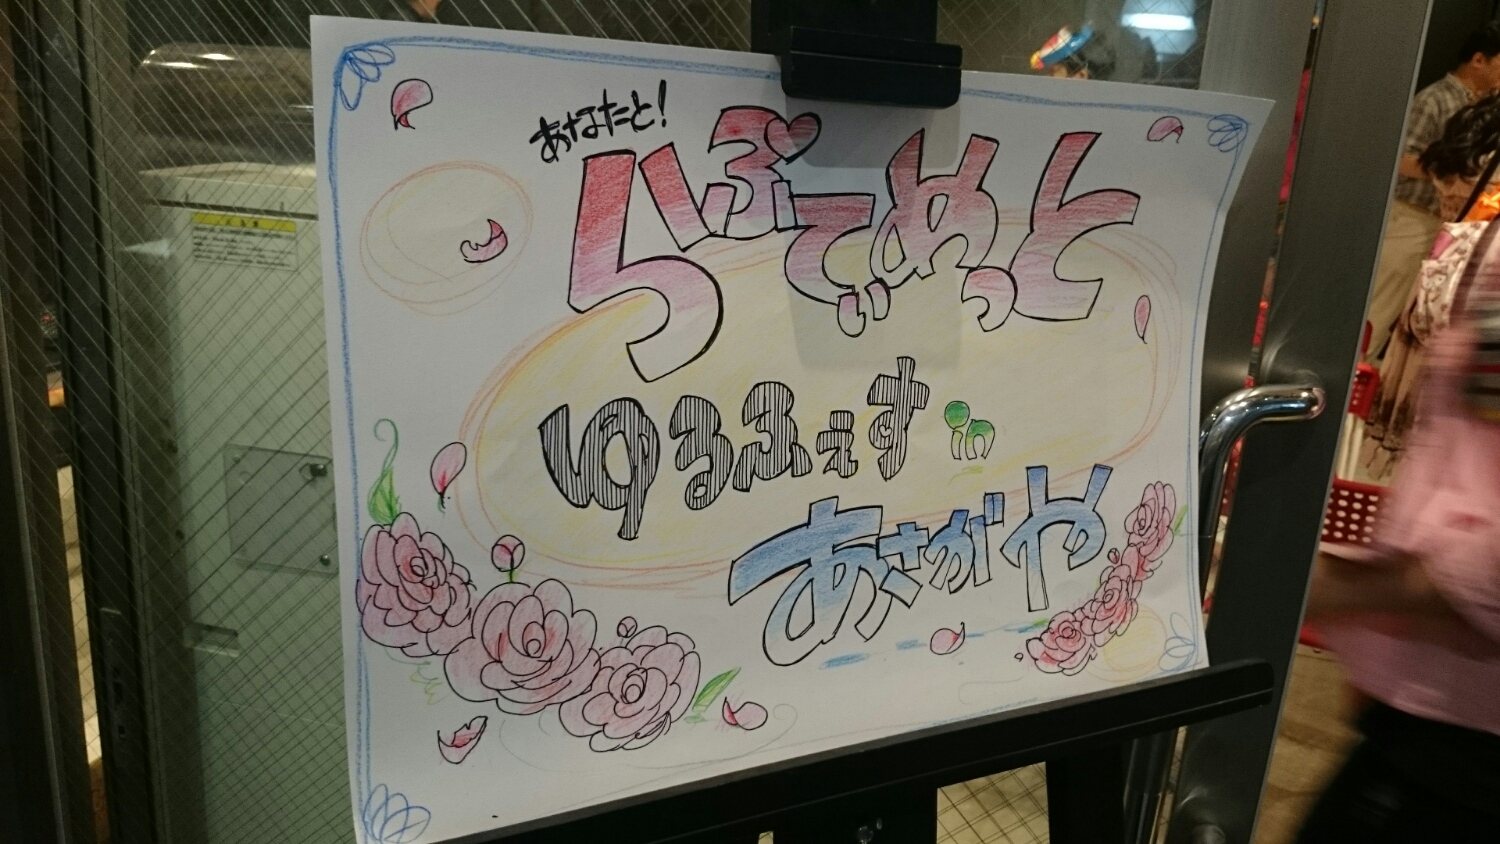 あなたと!
らぶでぃめっと
ゆるふぇす in
あさがや